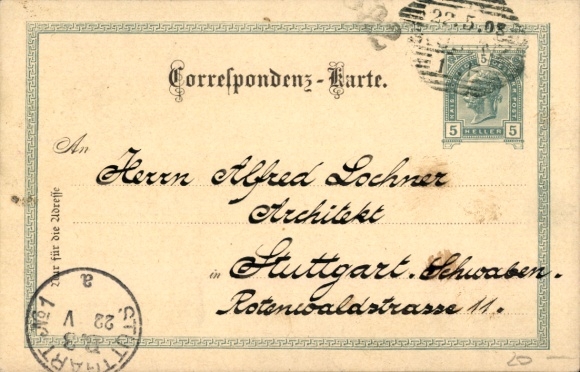 22.5.03
Correspondenz-Karte.
5
5 HELLER 5
An
Herrn Alfred Lochner
Architekt
in Stuttgart. Schwaben.
Rotenwaldstrasse 11.
Nur für die Adresse
STUTTGART No 1
22 V
a
20 —